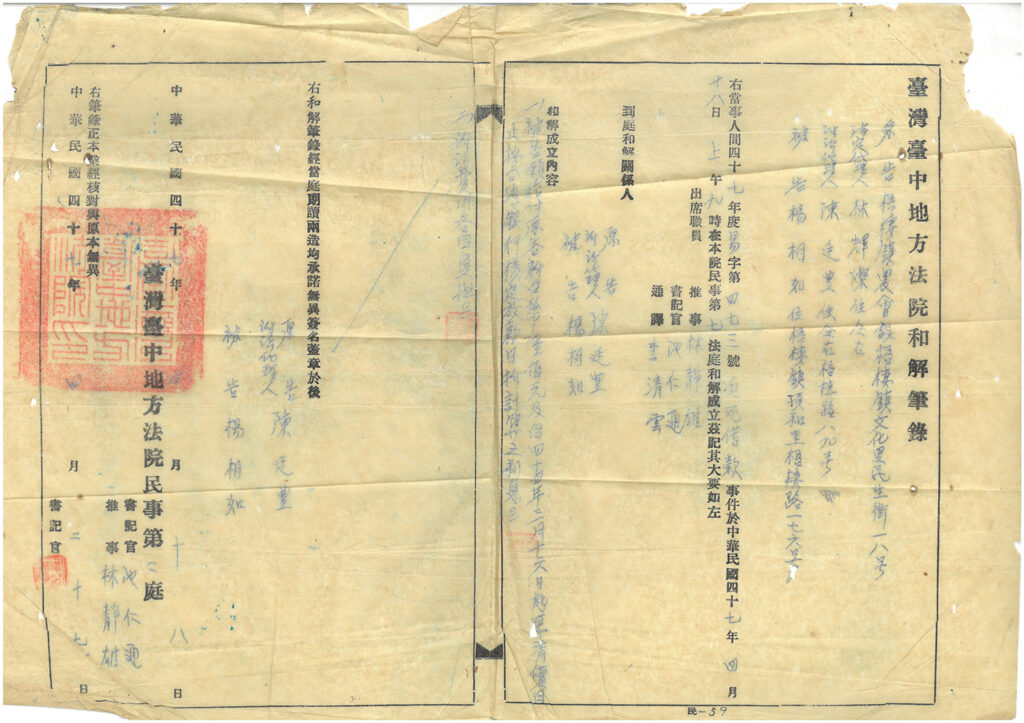 臺灣臺中地方法院和解筆錄
原告梧棲鎮農會設梧棲鎮文化里民生街一八号
法定代理人林輝燦住仝右
訴訟代理人陳廷里住仝右梧棲路八九号
被告楊相如住梧棲鎮頂和里梧棲路一七六号
右當事人間四十七年度易字第四七二號返还借款事件於中華民國四十七年四月
十八日上午九時在本院民事第七法庭和解成立茲記其大要如左
出席職員
推事林靜雄
書記官池仁
通譯李清雲
到庭和解關係人
原告
訴訟代理人陳廷里
被告楊相如
和解成立內容
一、被告願給付原告新台幣 佰元及自四十 年二月十六日起至清償日
止按 核定放款日拆計 之利息
二、訴訟費用 負担
右和解筆錄經當庭朗讀兩造均承諾無異簽名蓋章於後
原告
訴訟代理人陳廷里
被告楊相如
中華民國四十七年四月十八日
臺灣臺中地方法院民事第二庭
書記官池仁
推事林靜雄
右筆錄正本業經核對與原本無異
中華民國四十七年四月二十七日
書記官
民-59